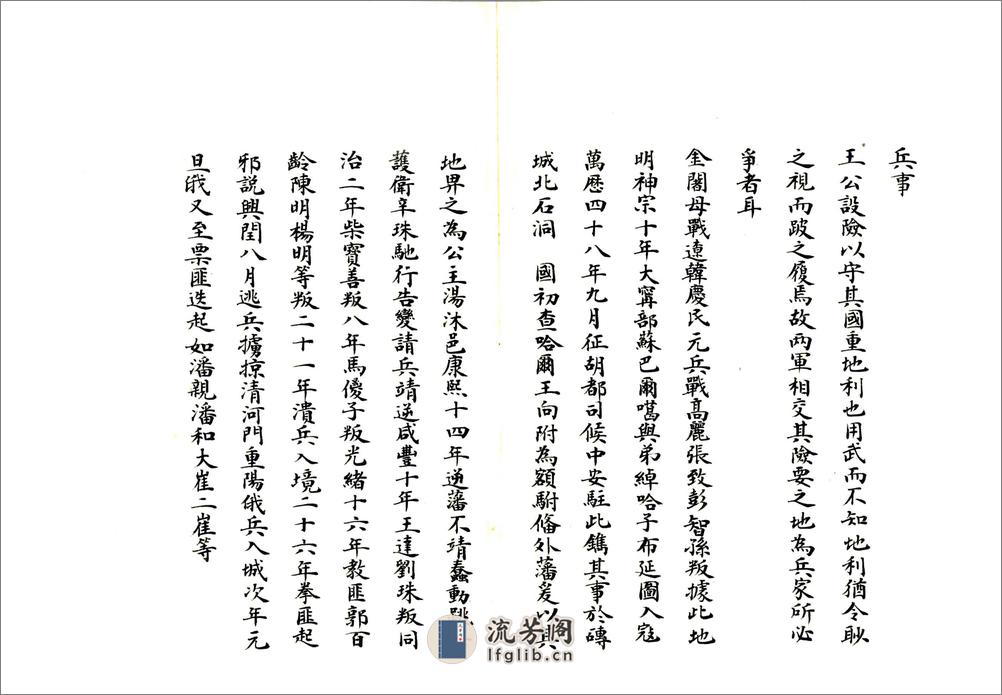 兵事
王公設險以守其國重地利也用武而不知地利猶令眇
之視而跛之履焉故両軍相交其險要之地為兵家所必
爭者耳
金闍母戰遼韓慶民元兵戰高麗張致彭智孫叛據此地
明神宗十年大寧部蘇巴爾噶與弟綽哈子布延圖入寇
萬歷四十八年九月征胡都司候中安駐此鐫其事於磚
城北石洞 國初查哈爾王向附為額駙俻外藩爰以其
地畀之為公主湯沐邑康熙十四年逆藩不靖蠢動跳
護衛辛珠馳行告變請兵靖逆咸豐十年王達劉珠叛同
治二年柴寳善叛八年馬傻子叛光緒十六年教匪郭百
齡陳明楊明等叛二十一年潰兵入境二十六年拳匪起
邪説興閏八月逃兵擄掠清河門重陽俄兵入城次年元
旦俄又至票匪迭起如潘親潘和大崔二崔等
流芳阁
lfglib.cn